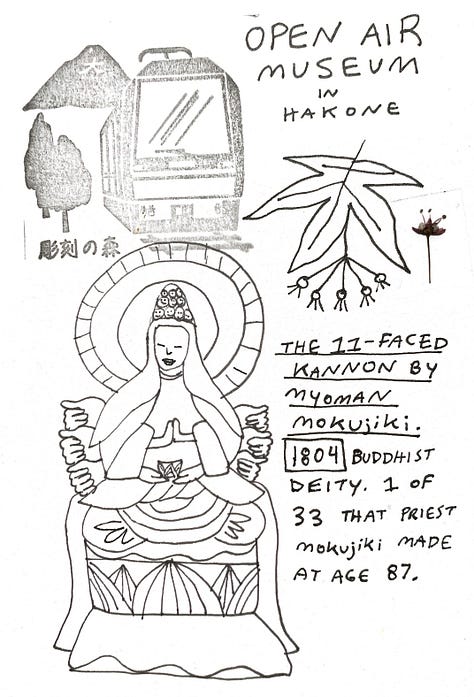 OPEN AIR
MUSEUM
IN
HAKONE
彫刻の森
THE 11-FACED
KANNON BY
MYOMAN
MOKUJIKI.
1804 BUDDHIST
DEITY. 1 OF
33 THAT PRIEST
MOKUJIKI MADE
AT AGE 87.